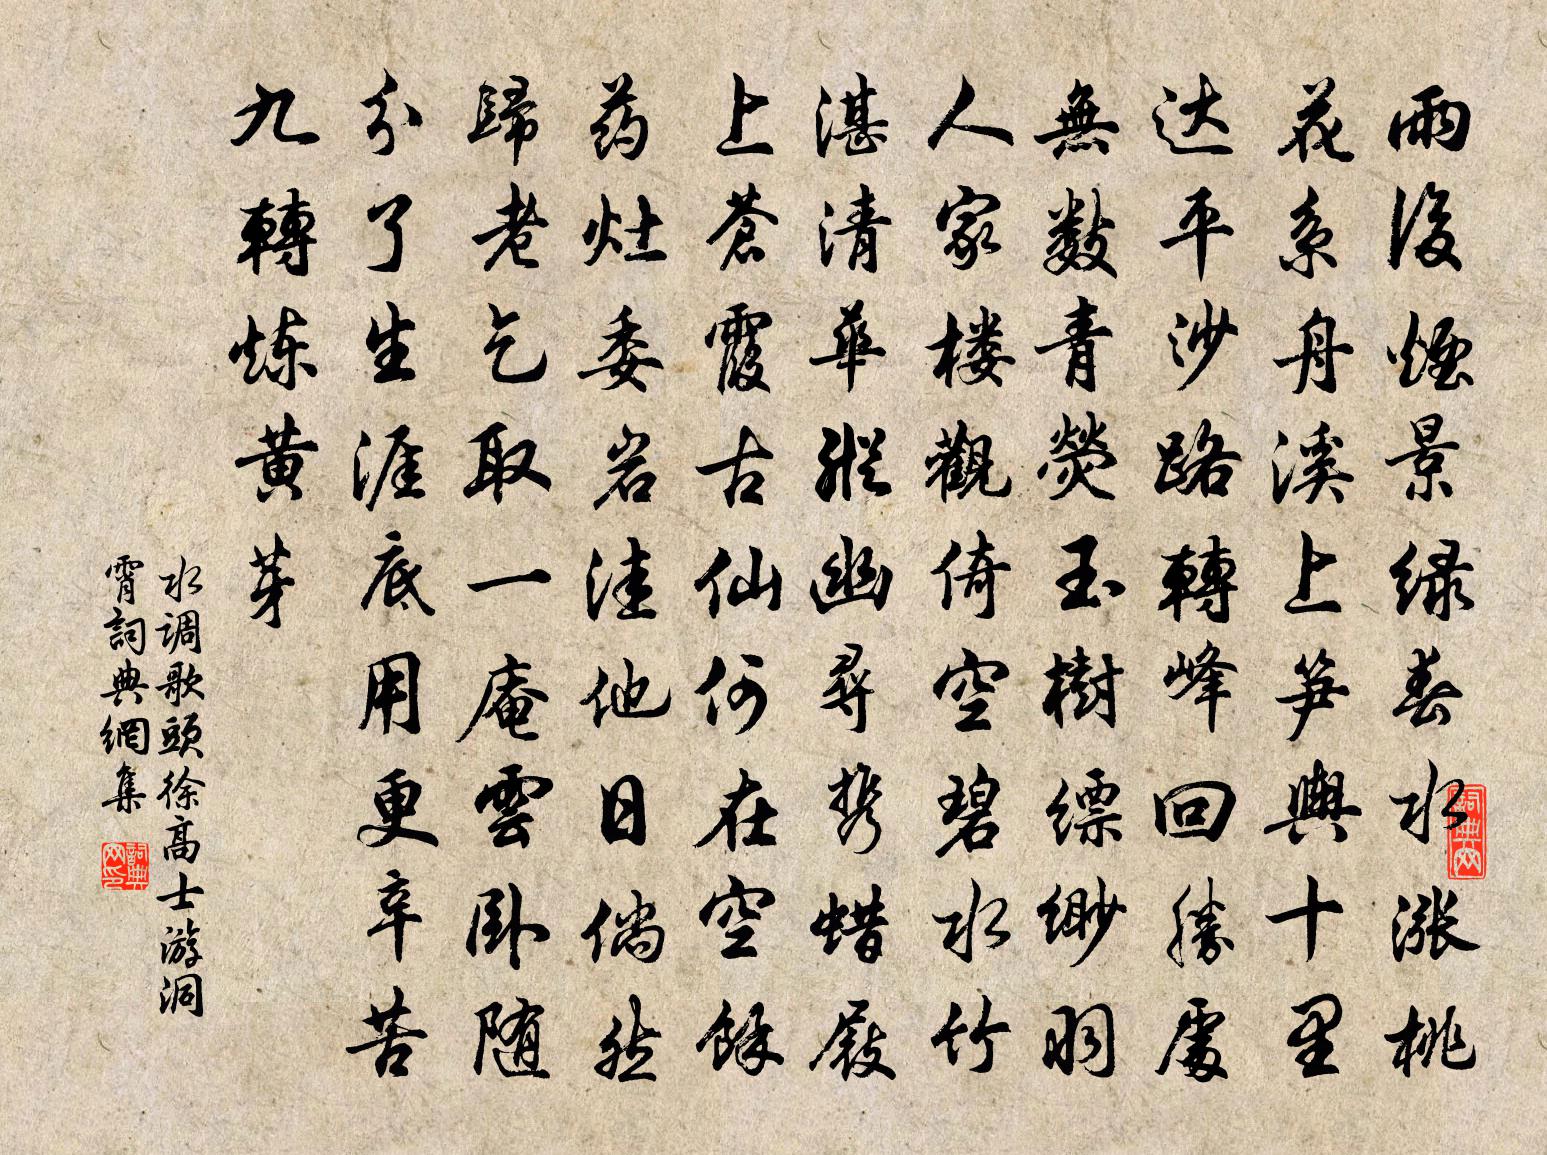 雨後煙景綠春水漲桃
花系舟溪上笋輿十里
达平沙路轉峰回勝處
無數青熒玉樹縹緲羽
人家楼觀倚空碧水竹
湛清華縱幽尋携蜡屐
上蒼霞古仙何在空餘
药灶委岩洼他日倘然
歸老乞取一庵雲卧随
分了生涯底用更辛苦
九轉炼黄芽
水调歌頭徐高士游洞
霄詞典網集
詞典网
詞典网印